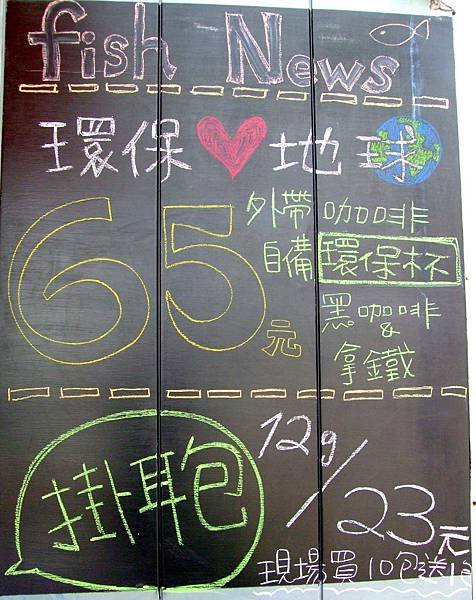 fish News
環保 地球
外帶 咖啡
自備 環保杯
65元
黑咖啡
&
拿鐵
掛耳包
12g/23元
現場買10包送1包